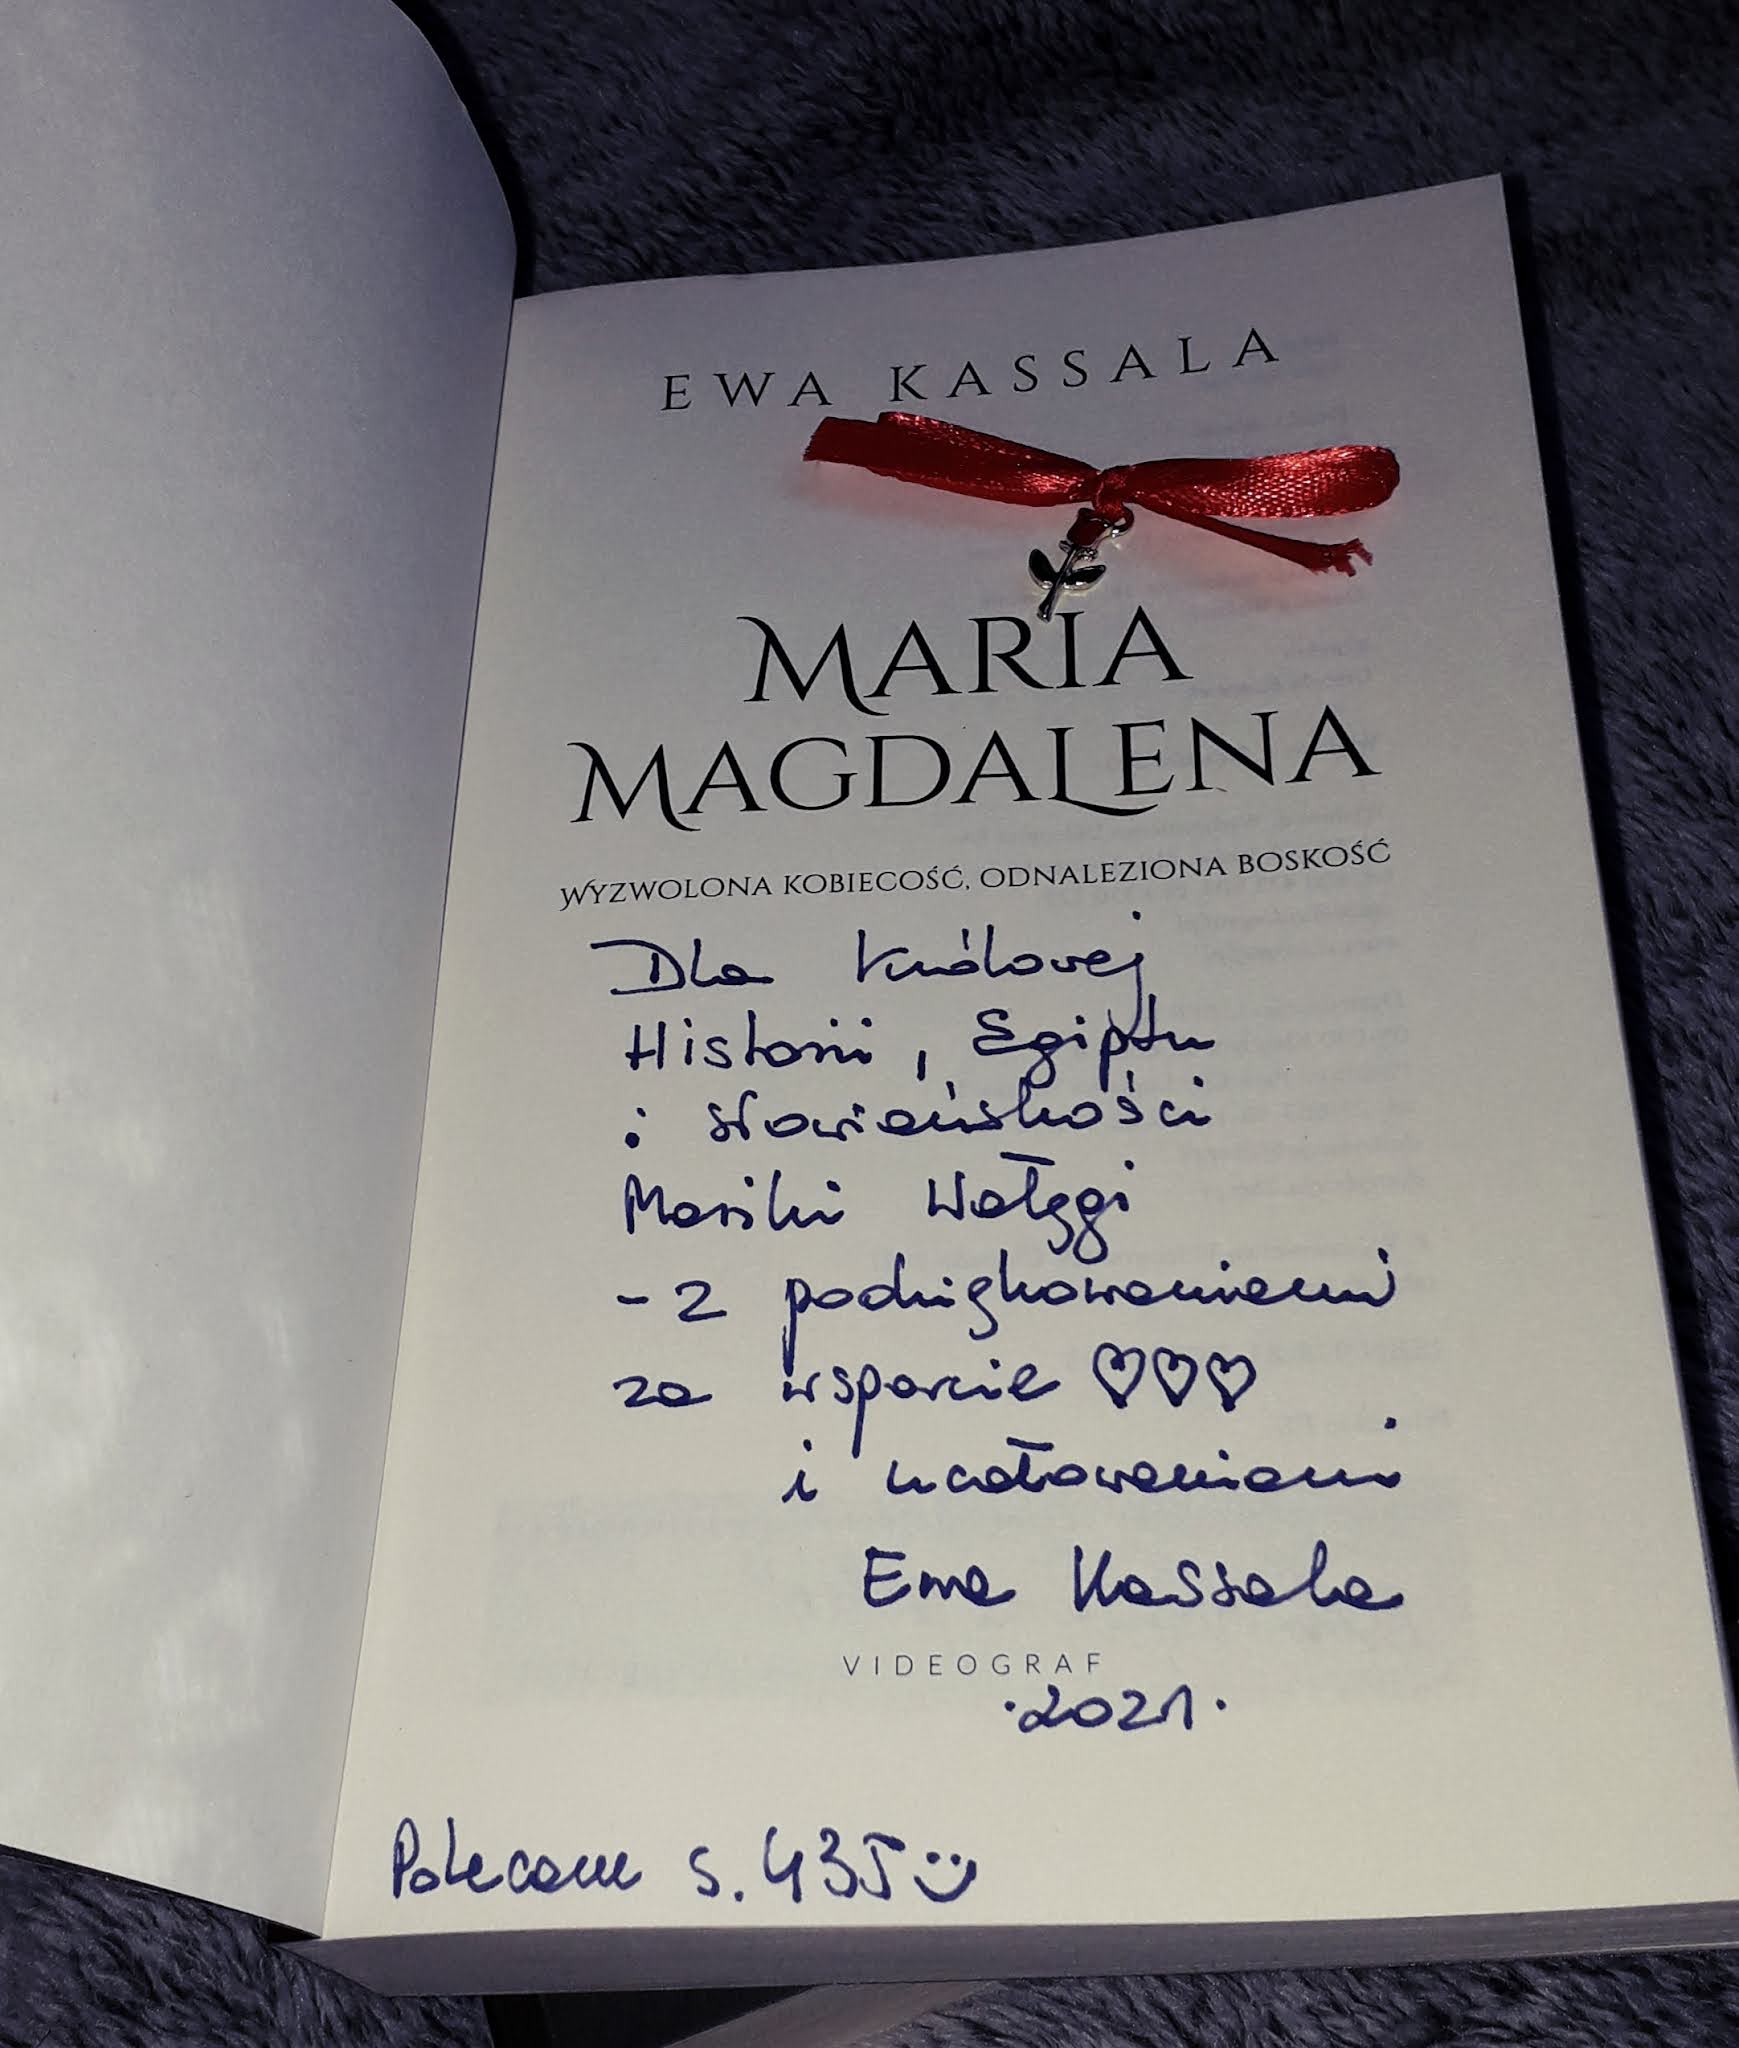 EWA KASSALA
MARIA
MAGDALENA
WYZWOLONA KOBIECOŚĆ, ODNALEZIONA BOSKOŚĆ
Dla Królowej
Historii, Egiptu
i słowiańskości
Mariki Wałęgi
- z podziękowaniami
za wsparcie ♡♡♡
i ucałowaniami
Ewa Kassala
VIDEOGRAF
·2021·
Polecam s. 435 :)